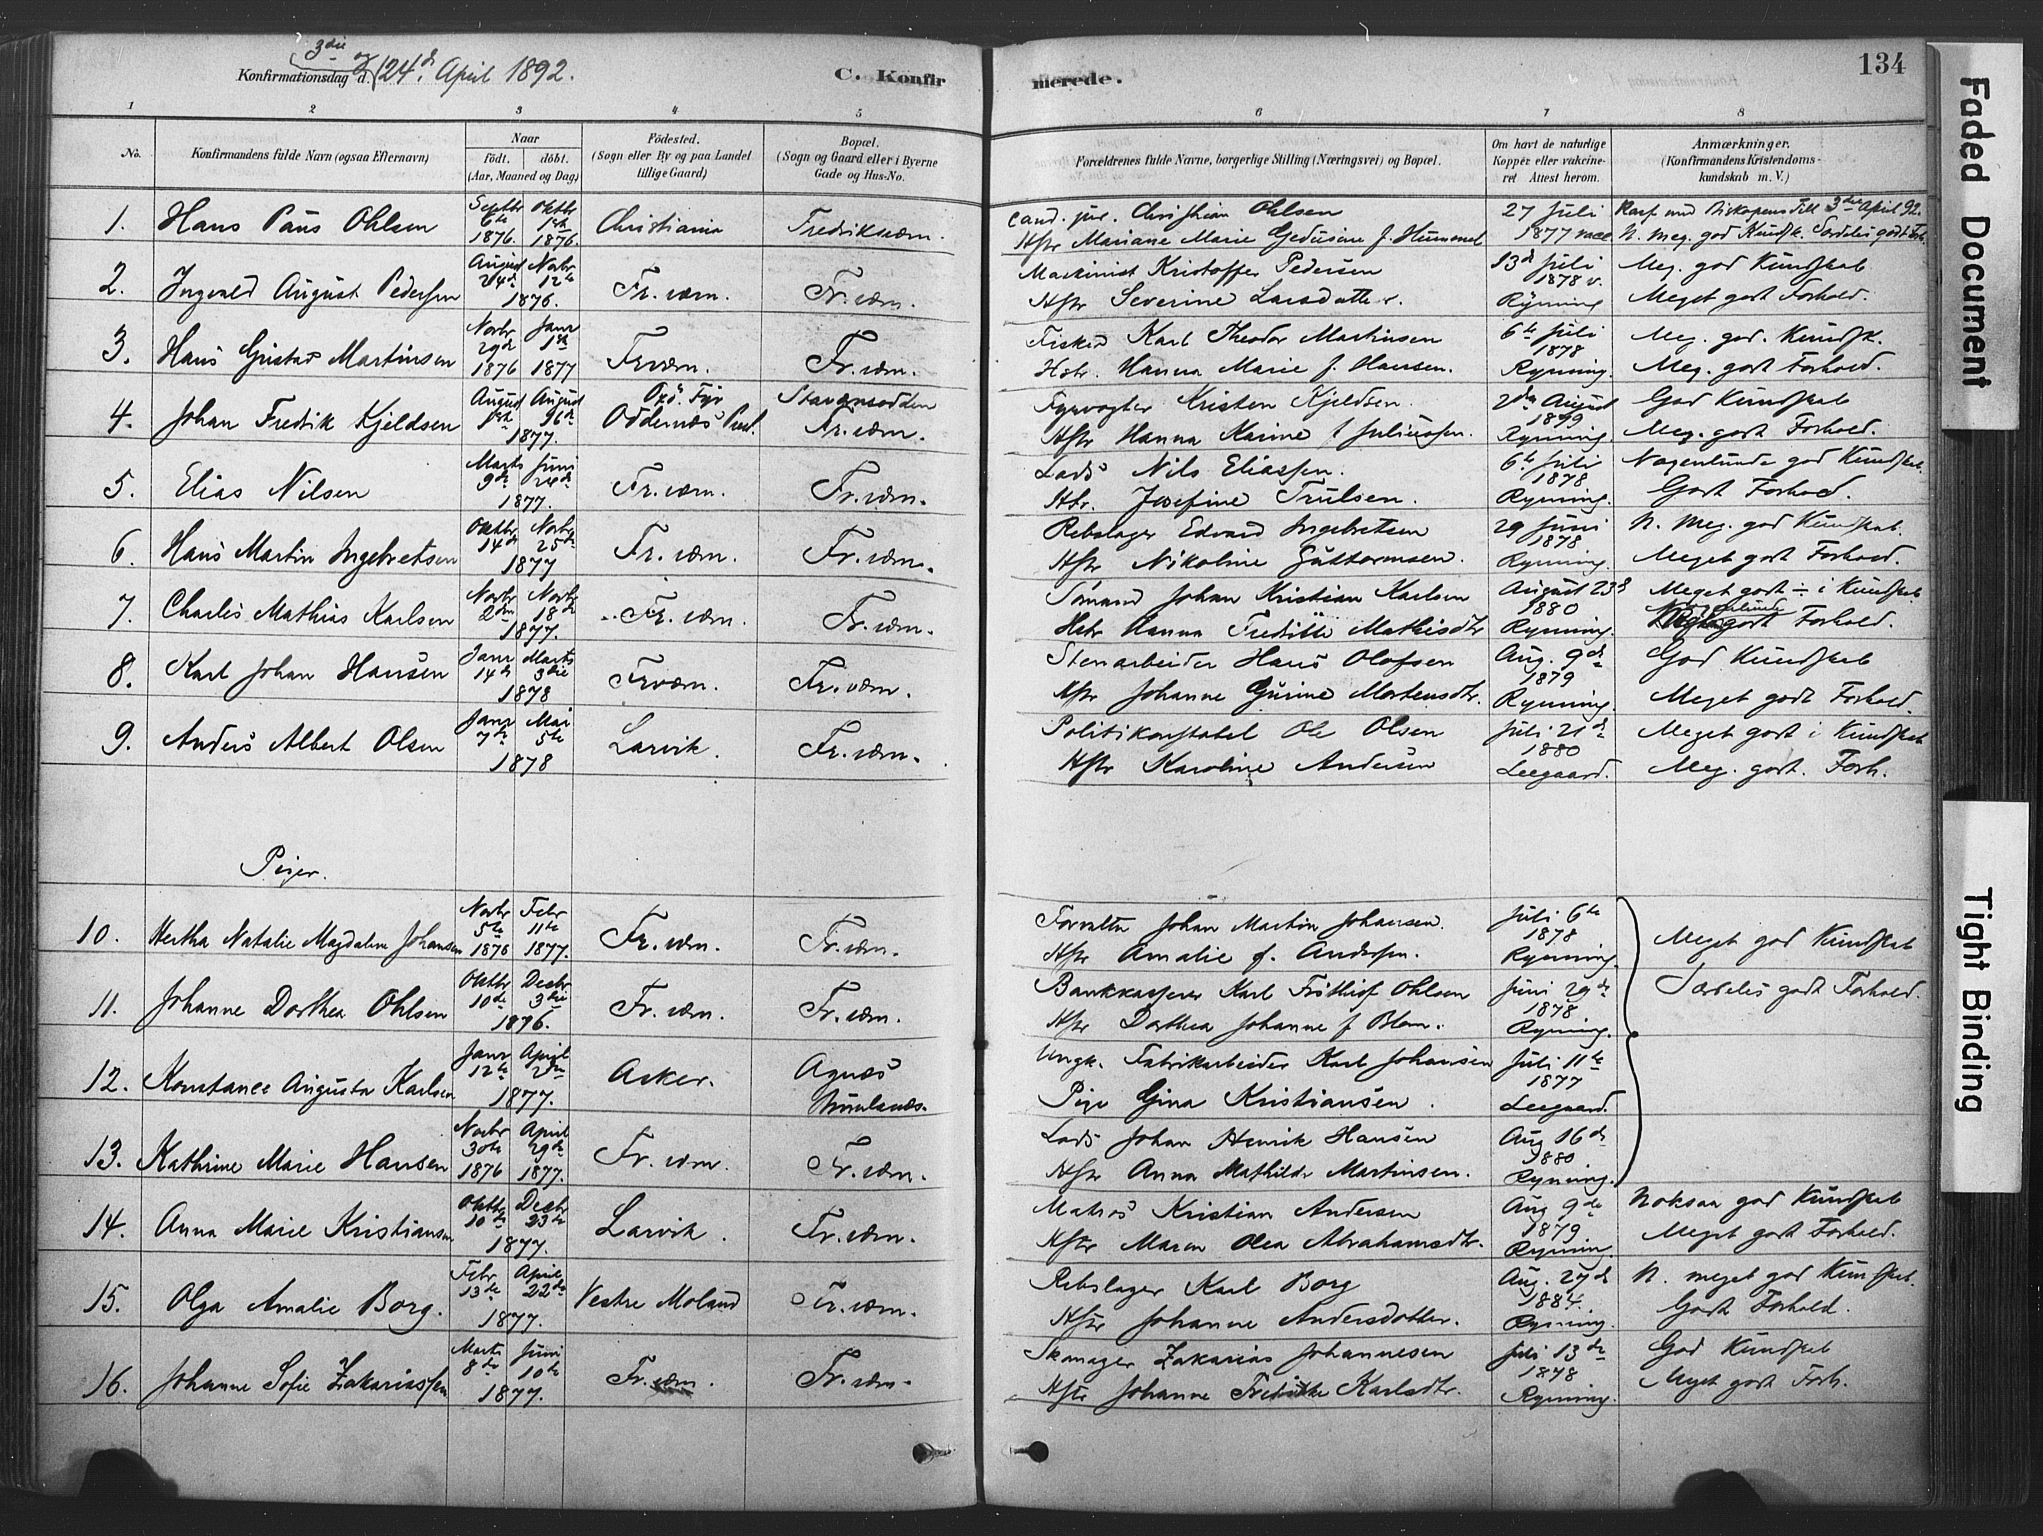 3die og
Konfirmationsdag d. 24d. April 1892.
C. Konfirmerede.
134
1 2 3 4 5 6 7 8
No.
Konfirmandens fulde Navn (ogsaa Efternavn)
Naar
født. døbt.
(Aar, Maaned og Dag)
Fødested.
(Sogn eller By og paa Landet
tillige Gaard)
Bopæl.
(Sogn og Gaard eller i Byerne
Gade og Hus-No.
Forældrenes fulde Navne, borgerlige Stilling (Næringsvei) og Bopæl.
Om havt de naturlige
Kopper eller vakcine-
ret Attest herom.
Anmærkninger.
(Konfirmandens Kristendoms-
kundskab m. V.)
1. Hans Paus Ohlsen Septbr 6te 1876. Oktbr 1876. Christiania Fredriksværn.
Cand. jur. Christian Ohlsen 27 Juli 3die April 92.
Hstr Mariane Marie Gedusine f. Hummel 1877 vacc. N. meg. god Kundsk. Særdeles godt Forh.
2. Ingvald August Pedersen August 24de Novbr 12te 1876. Fr.værn. Fr.værn.
Maskinist Kristoffer Pedersen 13d Juli 1878 v. Meg. god Kundskab
Hstr Severine Larsdatter. Rynning Meget godt Forhold.
3. Hans Gustav Martinsen Novbr 29de 1876 Janr 1ste 1877 Fr.værn. Fr.værn.
Fisker Karl Theodor Martinsen 6te Juli 1878 Meg. god. Kundsk.
Hstr. Hanna Marie f. Hansen. Rynning. Meg. godt Forhold.
4. Johan Fredrik Kjeldsen August 1ste August 1877. Oxö Fyr Oddernæs Præst. Stavernsodden Fr.værn.
Fyrvogter Kristen Kjeldsen. 2den August 1899 God Kundskab
Hstr Hanna Karine f Juliussen. Rynning. Meg. godt Forhold.
5. Elias Nilsen Marts 9de Juni 1877. Fr.værn. Fr.værn.
Lods Nils Eliassen. 6te Juli 1878 Nogenlunde god Kundskab.
Hstr. Josefine Trulsen. Rynning. Godt Forhold.
6. Hans Martin Ingebretsen Oktbr 14de Novbr 25de 1877 Fr.værn. Fr.værn.
Rebslager Edvard Ingebretsen 29 Juni 1878 N. meg. god Kundskab.
Hstr Nikoline Guttormsen. Rynning. Meget godt Forhold.
7. Charles Mathias Karlsen Novbr 2den Novbr 18de 1877. Fr.værn. Fr.værn.
Sømand Johan Kristian Karlsen August 23d 1880 Meget godt ÷ i Kundskab.
Hstr Hanna Fredrikke Mathisdtr Rynning. Nogenlunde godt Forhold.
8. Karl Johan Hansen Janr 14de Marts 3die 1878 Fr.værn. Fr.værn.
Stenarbeider Hans Olofsen Aug. 9de 1879 God Kundskab
Hstr Johanne Gurine Mortensdtr. Rynning. Meget godt Forhold.
9. Anders Albert Olsen Janr 7de Mai 5te 1878 Larvik. Fr.værn.
Politikonstabel Ole Olsen Juli 21d 1880 Meget godt i Kundskab
Hstr Karoline Andersen Leegaard. Meg. godt. Forh.
Piger.
10. Hertha Natalie Magdalene Johansen Novbr 5te 1876 Febr 11te 1877. Fr.værn. Fr.værn.
Forvalter Johan Martin Johansen. Juli 6te 1878 Meget god Kundskab
Hstr Amalie f. Andersen. Rynning.
11. Johanne Dorthea Ohlsen Oktbr 10de Decbr 3die 1876. Fr.værn. Fr.værn.
Bankkasserer Karl Frithiof Ohlsen Juni 29de 1878 Særdeles godt Forhold.
Hstr Dorthea Johanne f Blom. Rynning.
12. Konstance Augusta Karlsen Janr 12te April 2den 1877. Asker. Agnæs Brunlanæs.
Ungk. Fabrikarbeider Karl Johansen Juli 11te 1877
Pige Gina Kristiansen. Leegaard.
13. Kathrine Marie Hansen Novbr 30te 1876 April 29de 1877. Fr.værn. Fr.værn.
Lods Johan Henrik Hansen Aug 16de 1880
Hstr Anna Mathilde Martinsen. Rynning.
14. Anna Marie Kristiansen Oktbr 10de Decbr 23de 1877. Larvik. Fr.værn.
Matros Kristian Andersen Aug 9de 1879 Noksaa god Kundskab
Hstr Maren Olea Abrahamsdtr. Rynning. Meget godt Forhold.
15. Olga Amalie Borg. Febr 13de April 22de 1877. Vestre Moland Fr.værn.
Rebslager Karl Borg Aug. 27d 1884. N. meget god Kundskab.
Hstr Johanne Andersdotter. Rynning. Godt Forhold.
16. Johanne Sofie Zakariassen Marts 8de Juni 10de 1877. Fr.værn. Fr.værn.
Skomager Zakarias Johannesen Juli 13de 1878 God Kundskab
Hstr Johanne Fredrikke Karlsdtr. Rynning. Meget godt Forh.
Faded Document
Tight Binding